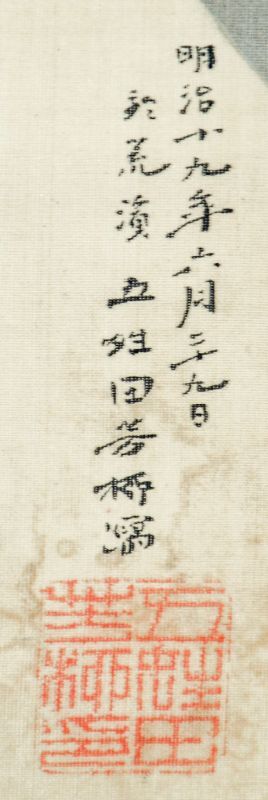 明治十九年六月二十九日
於荒濱 五姓田芳柳寫
五姓田
芳柳印